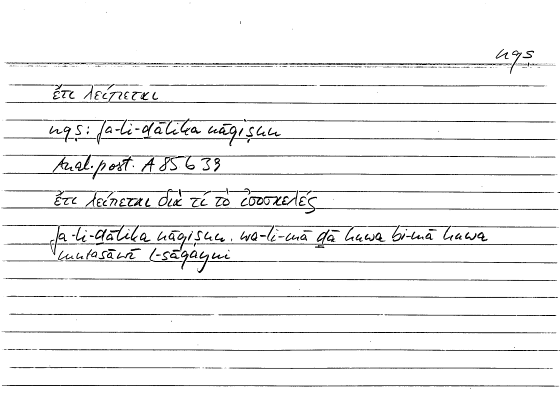 nqṣ
ἔτι λείπεται
nqṣ: fa-li-ḏālika nāqiṣun
Anal. post. A 85 b 39
ἔτι λείπεται διὰ τί τὸ ἰσοσκελές
fa-li-ḏālika nāqiṣun. wa-li-mā ḏā huwa bi-mā huwa
mutasāwī l-sāqayni